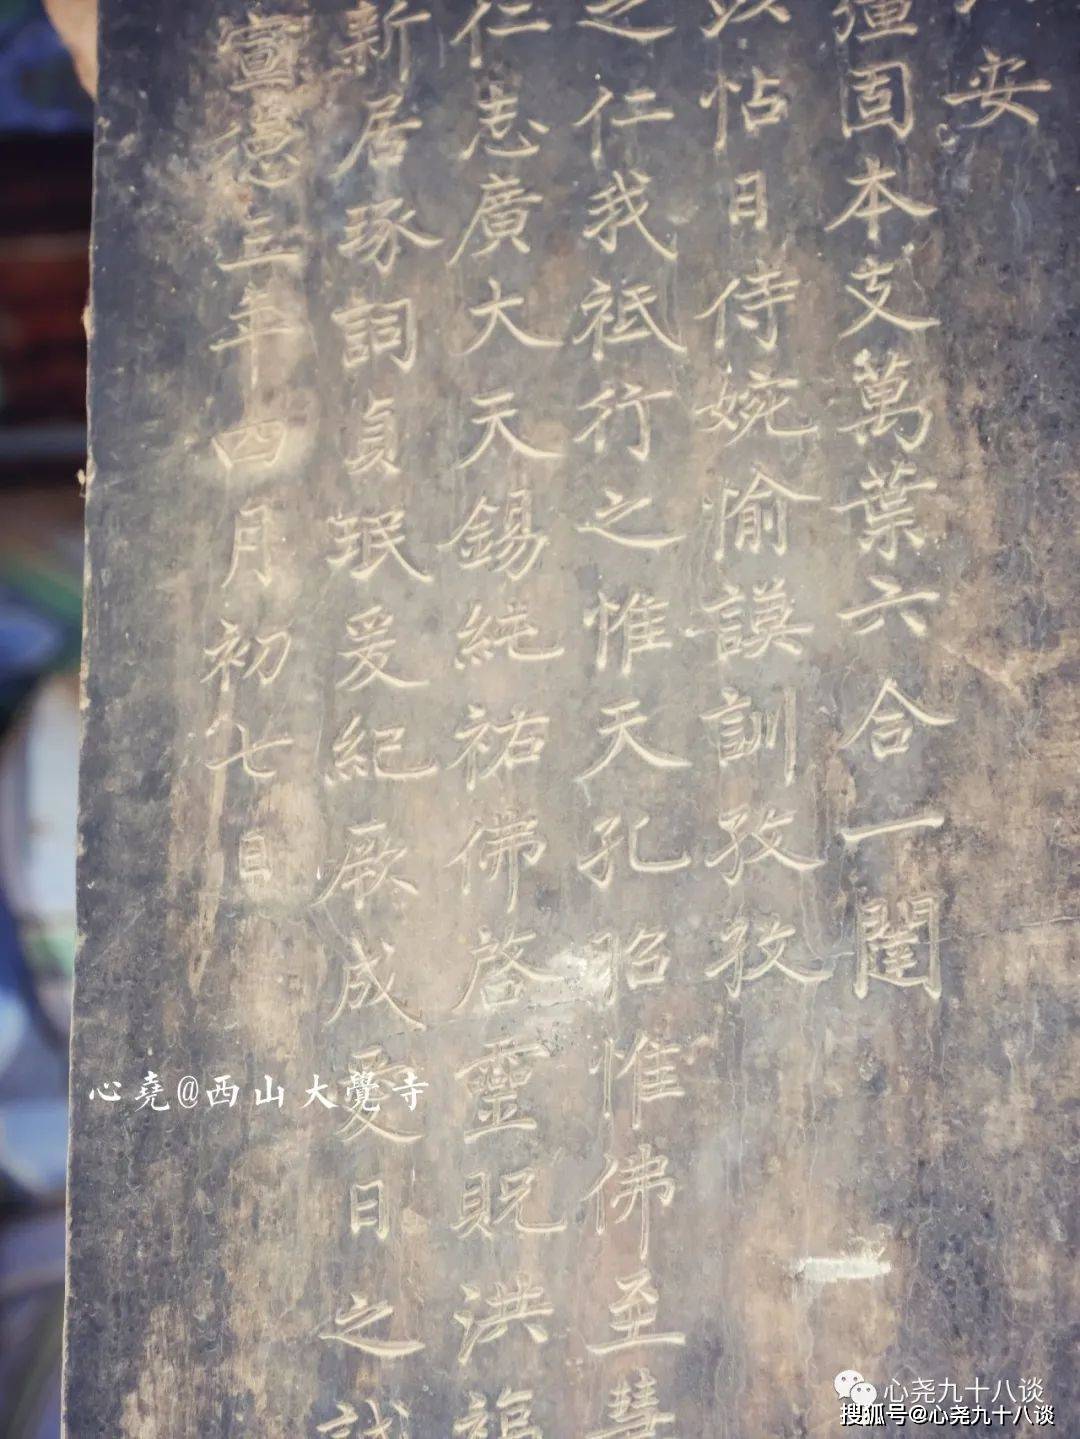 安
固本支萬葉六合一闓
以怙日侍婉愉謨訓孜孜
之仁我祗行之惟天孔昭惟佛至慧
仁志廣大天錫純祐佛啓靈貺洪福
新居琢詞貞珉爰紀厥成爱日之誠
宣德三年四月初七日
心堯@西山大覺寺
心尧九十八谈
搜狐号@心尧九十八谈